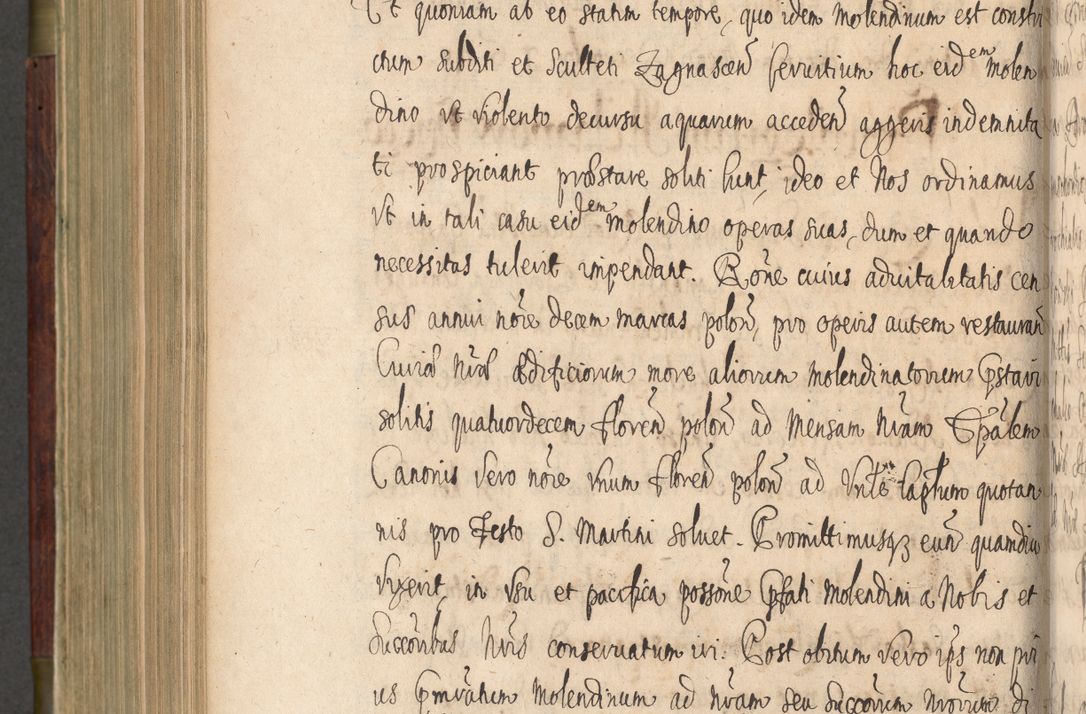 Et quoniam ab eo statim tempore, quo idem Molendinum est constru
ctum subditi et Sculteti Zagnascen̄ servitium hoc eidem molen
dino vt violento decursu aquarum acceden̄ aggeris indemnita
ti prospiciant præstare soliti sunt, ideo et Nos ordinamus
vt in tali casu eidem molendino operas suas, dum et quando
necessitas tulerit impendant. Rōne cuius advitalitatis cen
sus annui nōre decem marcas polon̄, pro operis autem restauran̄
Curiæ Nr̄æ ædificiorum more aliorum molendinatorum pstari
solitis quatuordecem floren̄ polon̄ ad Mensam Nr̄am Epālem
Canonis vero nōre vnum floren̄ polon̄ ad Capłum quotan
nis pro Festo S. Martini solvet. Promittimusq3 eun̄ quamdiu
vixerit, in vsu et pacifica possōne pfati molendini a Nobis et
Succōribus Nr̄is conservatum iri. Post obitum vero ip̄s non pri
us pmr̄atum Molendinum ad nr̄am seu Succōrum nr̄orum di